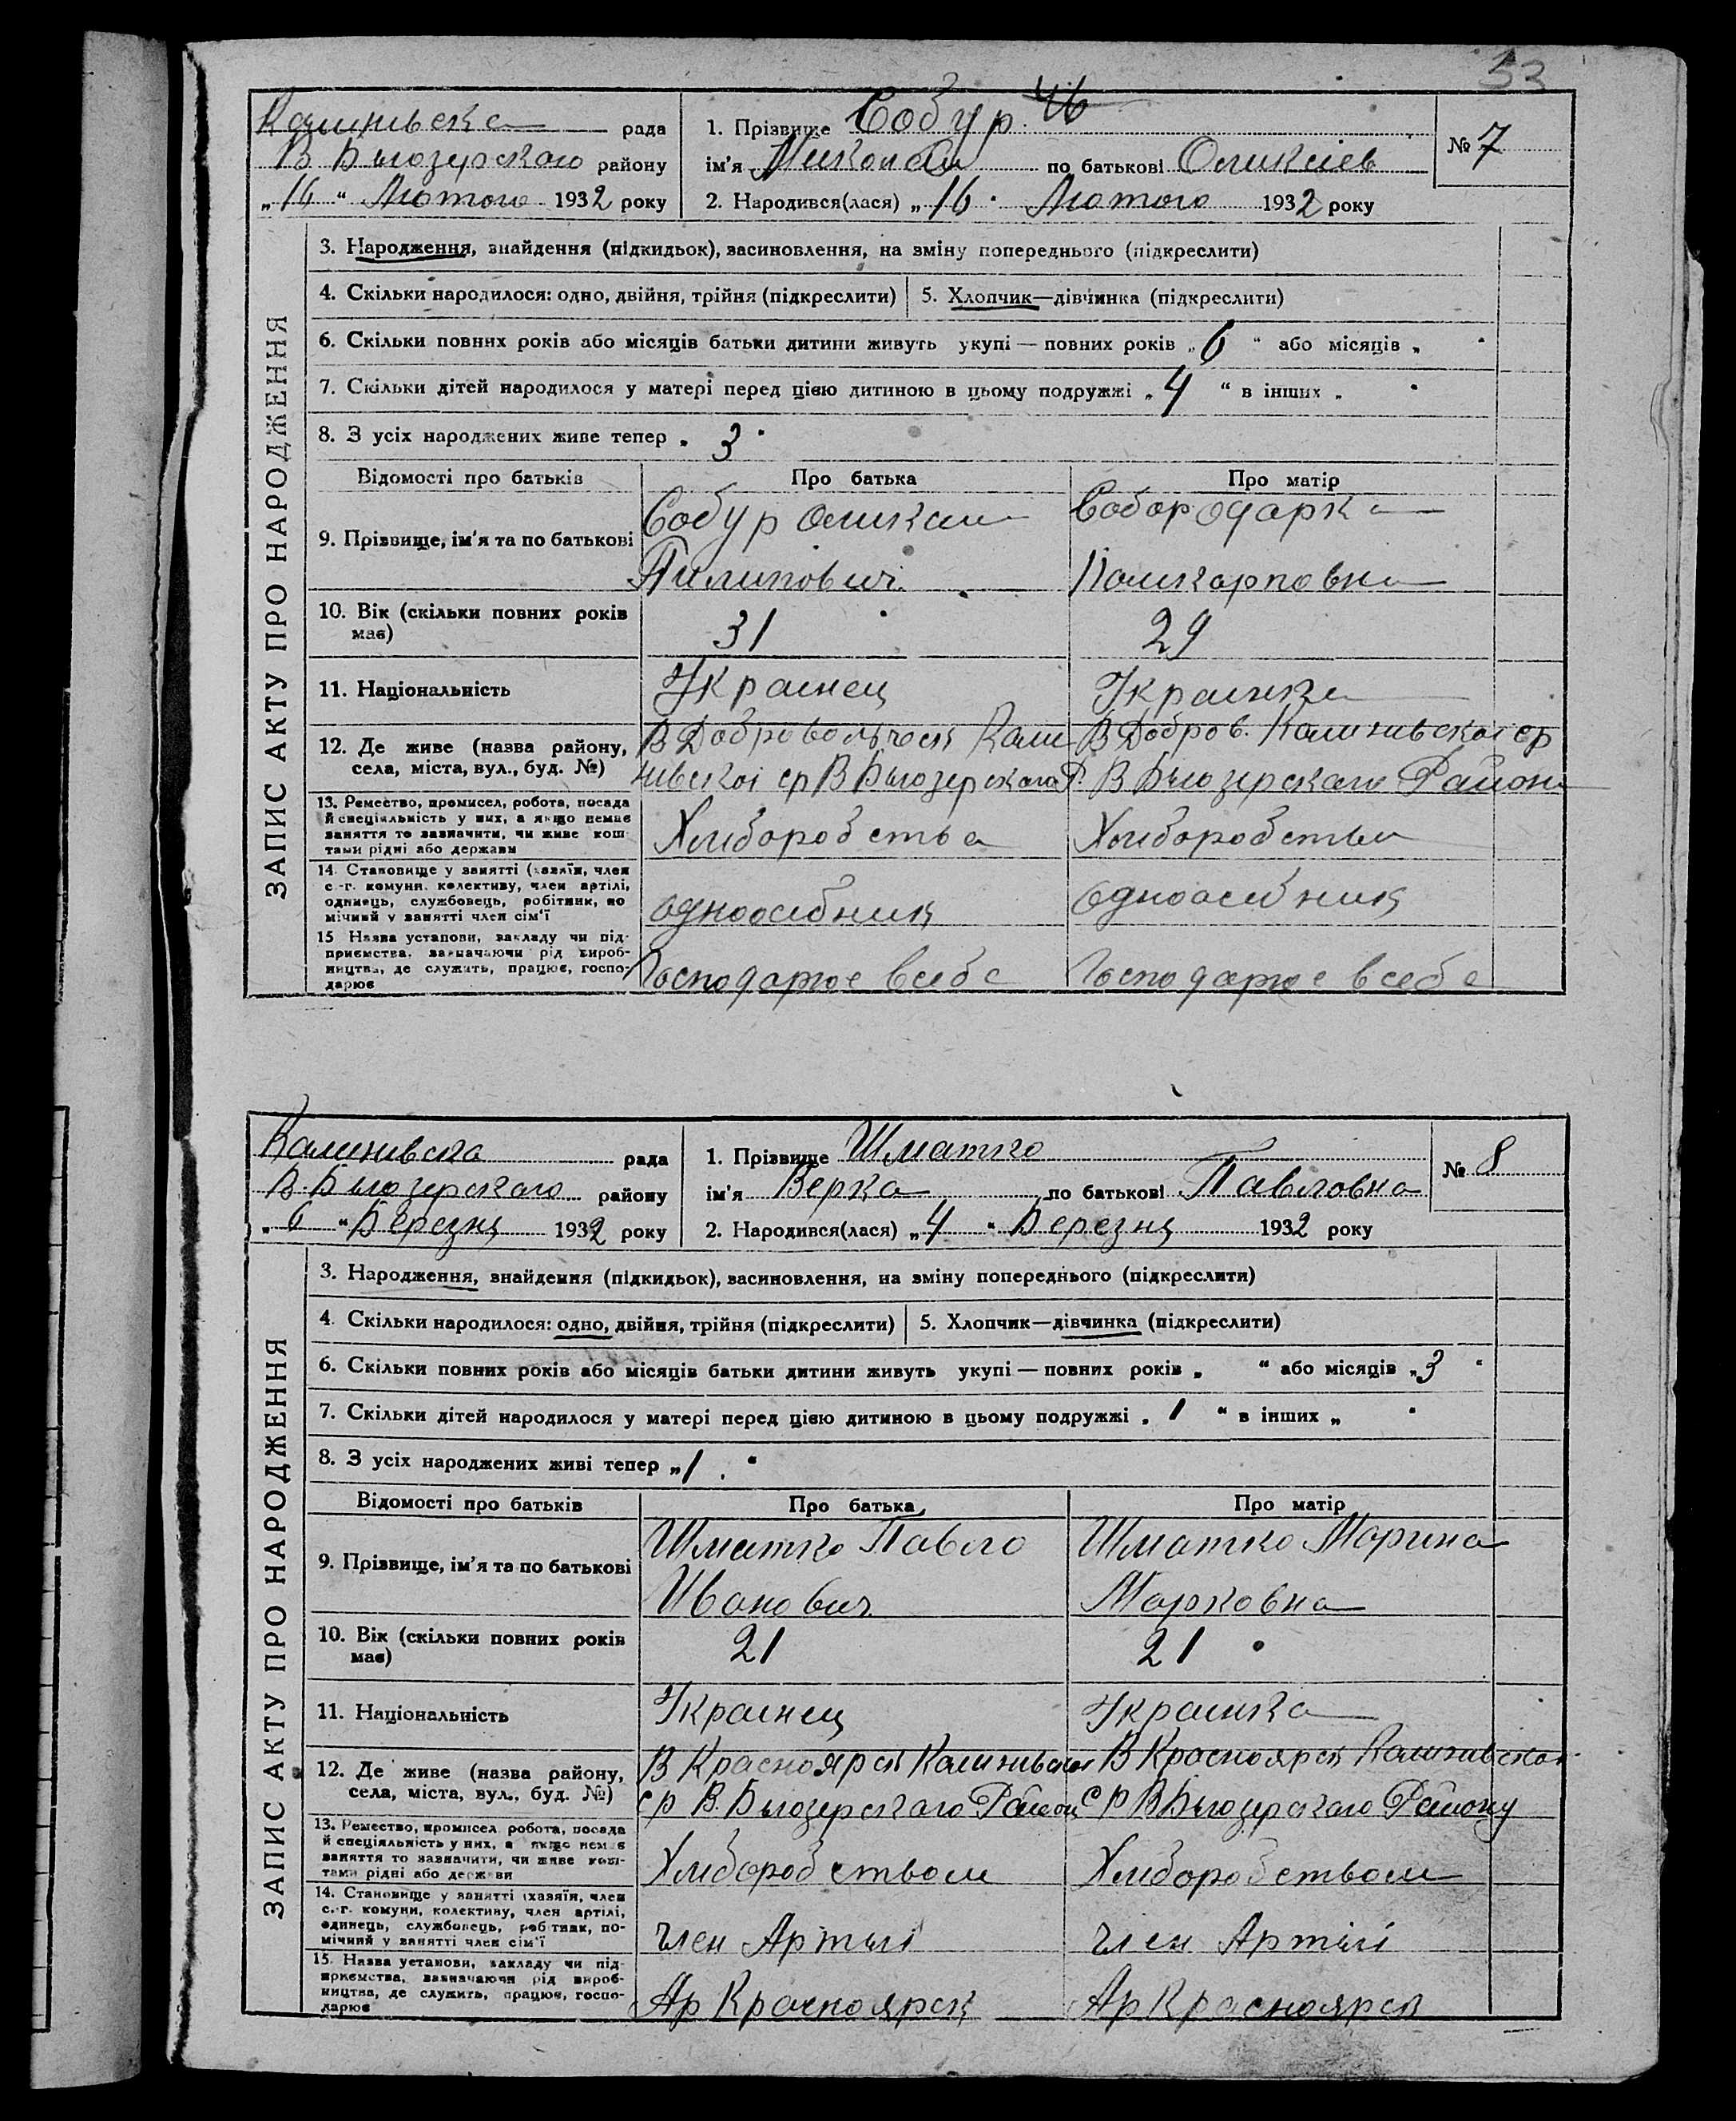 53
46
Калинивска рада
В Билозерского району
„16“ Лютого 1932 року
1. Прізвище Собур
ім'я Николай по батькові Оликсіев
2. Народився(лася) „16" Лютого 1932 року
№ 7
ЗАПИС АКТУ ПРО НАРОДЖЕННЯ
3. Народження, знайдення (підкидьок), засиновлення, на зміну попереднього (підкреслити)
4. Скільки народилося: одно, двійня, трійня (підкреслити) 5. Хлопчик—дівчинка (підкреслити)
6. Скільки повних років або місяців батьки дитини живуть укупі — повних років „6“ або місяців „ "
7. Скільки дітей народилося у матері перед цією дитиною в цьому подружжі „4“ в інших „ "
8. З усіх народжених живе тепер „3"
Відомості про батьків Про батька Про матір
9. Прізвище, ім'я та по батькові
Собур Оликсаи
Пилипович
Собор Одарка
Поликарповна
10. Вік (скільки повних років має) 31 29
11. Національність Украінец Украінка
12. Де живе (назва району, села, міста, вул., буд. №)
В Добровольческ Кали
нивскоі ср В Билозерского Р.
В Добров. Калинивскоі ср
В Билозерского Району
13. Ремество, промисел, робота, посада
й спеціяльність у них, а якщо немає
заняття то зазначити, чи живе кош-
тами рідні або держави
Хлиборобства Хлиборобствм
14. Становище у занятті (хазяїн, член
с.-г. комуни, колективу, член артілі,
одинець, службовець, робітник, по
мічний у занятті член сім'ї
одноосибник одноосибник
15 Назва установи, закладу чи під-
приємства, зазначаючи рід вироб-
ництва, де служить, працює, госпо-
дарює
Господарює в себе Господарює в себе
Калинивска рада
В. Билозерского району
„6“ Березня 1932 року
1. Прізвище Шматко
ім'я Верка по батькові Павловна
2. Народився(лася) „4“ Березня 1932 року
№ 8
ЗАПИС АКТУ ПРО НАРОДЖЕННЯ
3. Народження, знайдення (підкидьок), засиновлення, на зміну попереднього (підкреслити)
4. Скільки народилося: одно, двійня, трійня (підкреслити) 5. Хлопчик—дівчинка (підкреслити)
6. Скільки повних років або місяців батьки дитини живуть укупі — повних років „ “ або місяців „3"
7. Скільки дітей народилося у матері перед цією дитиною в цьому подружжі „1“ в інших „ "
8. З усіх народжених живі тепер „1"
Відомості про батьків Про батька Про матір
9. Прізвище, ім'я та по батькові
Шматко Павло
Иванович
Шматко Марина
Марковна
10. Вік (скільки повних років має) 21 21
11. Національність Украінец Украінка
12. Де живе (назва району, села, міста, вул., буд. №)
В Красноярск Калинивскоі
ср В. Билозерского Район
В Красноярск Калинивскоі
ср В Билозерского Району
13. Ремество, промисел, робота, посада
й спеціяльність у них, а якщо немає
заняття то зазначити, чи живе кош-
тами рідні або держави
Хлиборобством Хлиборобством
14. Становище у занятті (хазяїн, член
с.-г. комуни, колективу, член артілі,
одинець, службовець, робітник, по-
мічний у занятті член сім'ї
член Артилі член Артилі
15. Назва установи, закладу чи під-
приємства, зазначаючи рід вироб-
ництва, де служить, працює, госпо-
дарює
Ар Красноярск Ар Красноярск